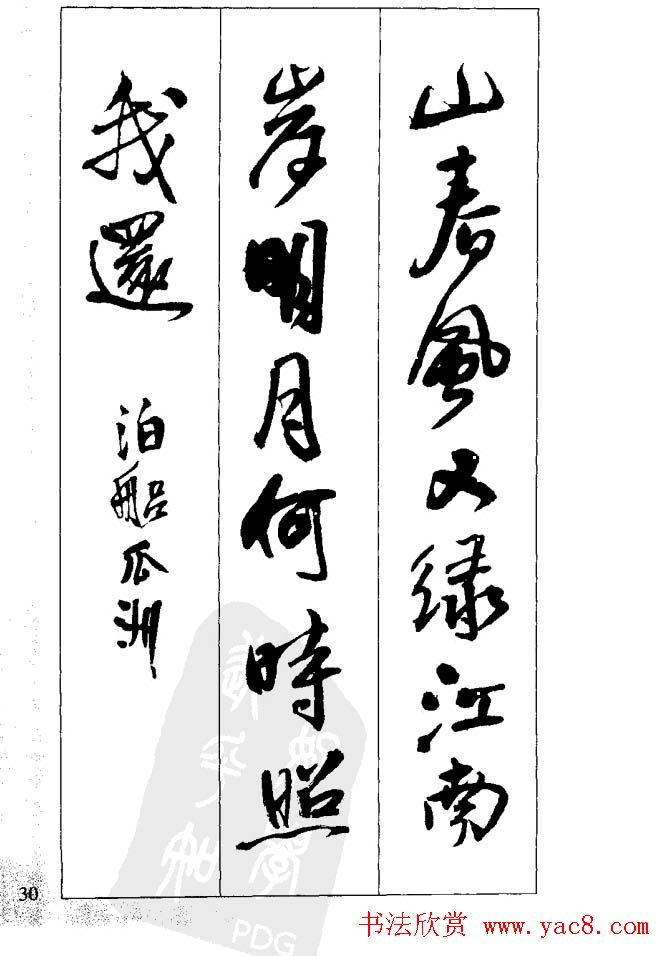 山春風又绿江南
岸明月何時照
我還
泊船瓜洲
30
PDG
书法欣赏 www.yac8.com